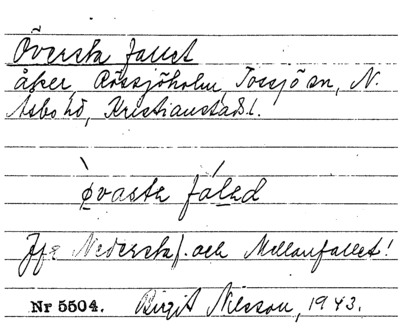 Överska fallet
åker, Rössjöholm, Tossjö sn, N.
Åsbo hd, Kristianstads l.
øvasta fáled
Jfr Nederska f. och Mellanfallet!
Nr 5504. Birgit Nilsson, 1943.